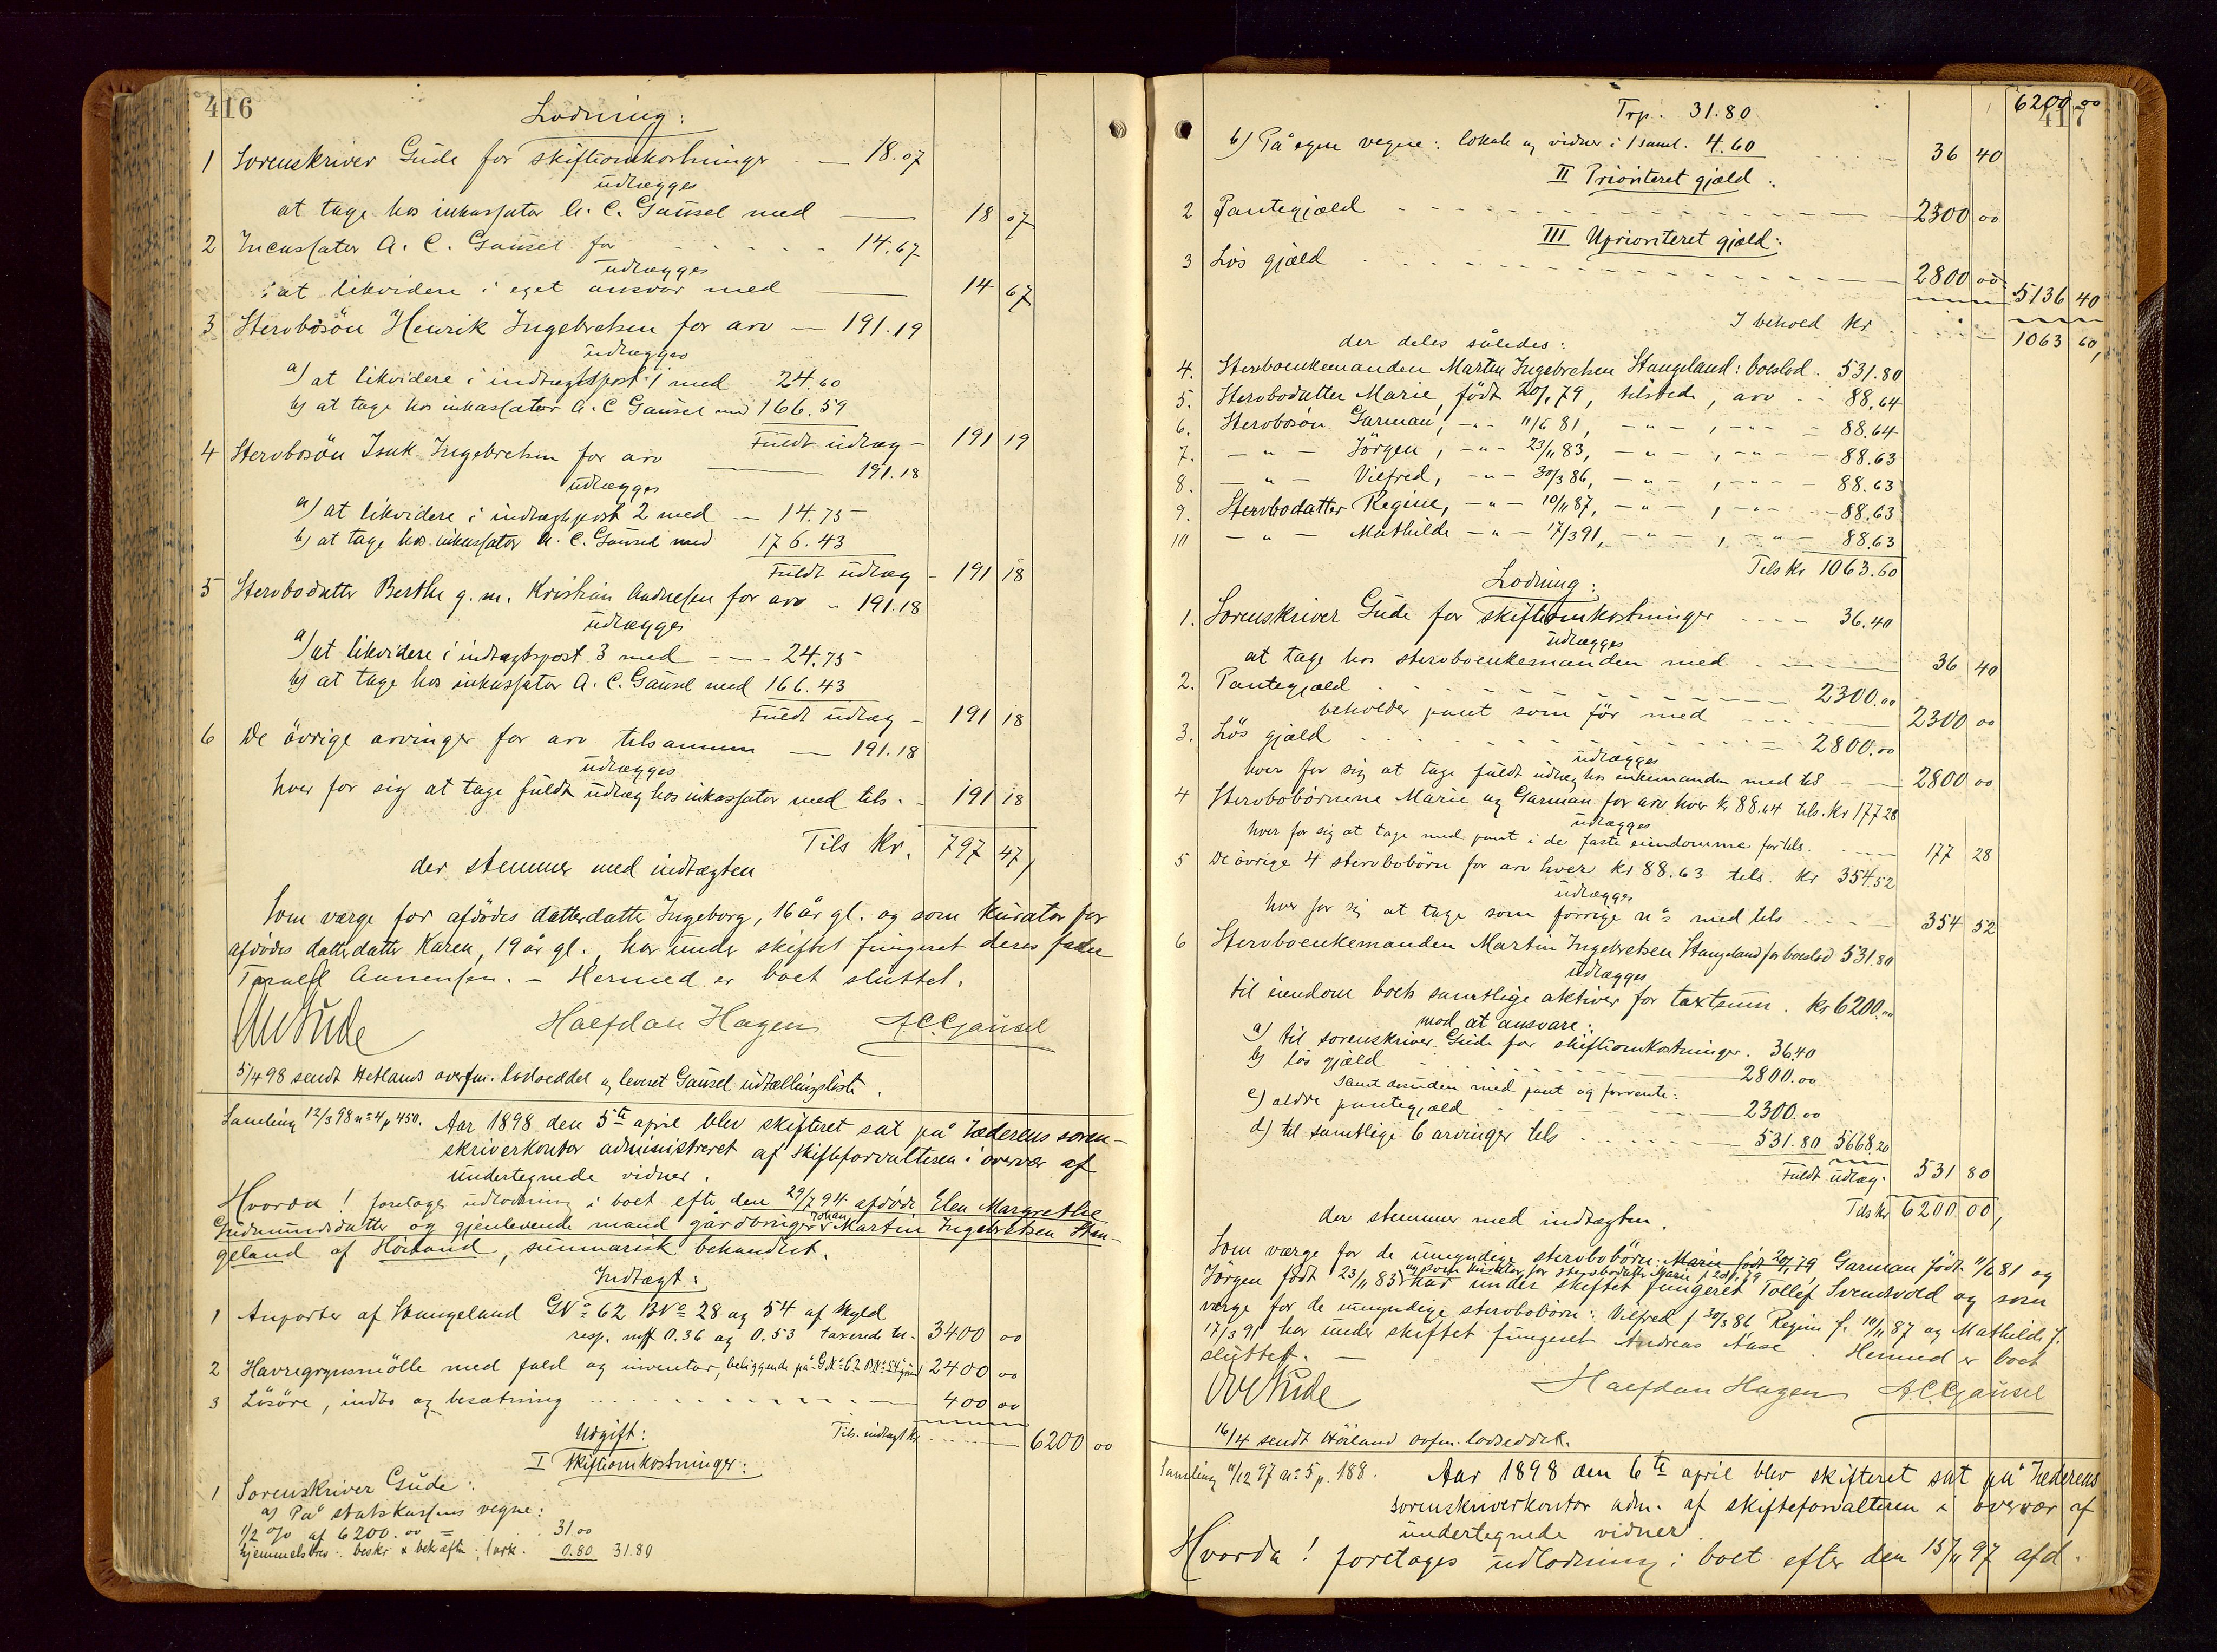 416
Lodning:
1 Sorenskriver Gude for skifteomkostninger — 18.07
udlægges
at tage hos inkassator A. C. Gausel med — 18 07
2 Incassator A. C. Gausel for - - - - - - 14.67
udlægges
: at likvidere i eget ansvar med — 14 67
3 Stervbosön Henrik Ingebretsen for arv — 191.19
udlægges
a) at likvidere i indtægtspost 1 med 24.60
b) at tage hos inkassator A. C Gausel med 166.59
Fuldt udlæg - 191 19
4 Stervbosön Isak Ingebretsen for arv — 191.18
udlægges
a) at likvidere i indtægtspost 2 med — 14.75
b) at tage hos inkassator A. C. Gausel med 176.43
Fuldt udlæg - 191 18
5 Stervbodatter Berthe g. m. Kristian Andresen for arv - 191.18
udlægges
a) at likvidere i indtægtspost 3 med - - - 24.75
b) at tage hos inkassator A. C. Gausel med 166.43
Fuldt udlæg - 191 18
6 De övrige arvinger for arv tilsammen — 191.18
udlægges
hver for sig at tage fuldt udlæg hos inkassator med tils. - 191 18
Tils Kr. 797 47,
der stemmer med indtægten
Som værge for afdödes datterdatter Ingeborg, 16 år gl. og som kurator for
afdödes datterdatter Karen, 19 år gl., har under skiftet fungeret deres fader
Torulf Aanensen. - Hermed er boet sluttet.
Gude Halfdan Hagen A.C.Gausel
5/4 98 sendt Hetlands overfm. lodseddel og leveret Gausel udtællingsliste.
Samling 12/3 98 no 4 p 450. Aar 1898 den 5te april blev skifteret sat på Jæderens soren-
skriverkontor administreret af skifteforvalteren i overvær af
undertegnede vidner.
Hvorda! foretages udlodning i boet efter den 29/7 94 afdöde Elen Margrethe
Gudmundsdatter og gjenlevende mand gårdbruger Johan Martin Ingebretsen Stan-
geland af Höiland, summarisk behandlet.
Indtægt:
1 Anparter af Stangeland GNo 62 BNo 28 og 54 af skyld
resp. mk 0.36 og 0.53 taxerede til - 3400 00
2 Havregrynsmölle med fald og inventar, beliggende på GNo 62 BNo 54's grund 2400 00
3 Lösöre, indbo og besætning - - - - - - 400 00
Tils. indtægt kr. - - - 6200 00
Udgift:
I Skifteomkostninger:
1 Sorenskriver Gude:
a) På statskassens vegne:
1/2 % af 6200.00 = - - - 31.00
hjemmelsbrev: beskr & bekræftn; 1 ark. 0.80 31.80
417
6200 00
Trp. 31.80
b) På egne vegne: lokale og vidner i 1 saml. 4.60 - - - 36 40
II Prioriteret gjæld:
2 Pantegjæld - - - - - - 2300 00
III Uprioriteret gjæld:
3 Lös gjæld - - - - - - 2800 00 5136 40
I behold Kr. - - - 1063 60,
der deles således:
4. Stervboenkemanden Martin Ingebretsen Stangeland: boeslod. 531.80
5. Stervbodatter Marie, födt 20/1 79, tilstede, arv - - 88.64
6. Stervbosön Garman, - " - 11/6 81, - " - , - " - - 88.64
7. - " - Jörgen, - " - 23/11 83, - " - , - " - - 88.63
8. - " - Vilfred, - " - 30/3 86, - " - , - " - - 88.63
9. Stervbodatter Regine, - " - 10/11 87, - " - , - " - - 88.63
10 - " - Mathilde - " - 17/3 91, - " - , - " - 88.63
Tils Kr 1063.60
Lodning:
1. Sorenskriver Gude for skifteomkostninger - - - - 36.40
udlægges
at tage hos stervboenkemanden med - - - 36 40
2. Pantegjæld - - - - - - 2300.00
beholder pant som för med - - - 2300 00
3. Lös gjæld - - - - - - 2800.00
udlægges
hver for sig at tage fuldt udlæg hos enkemanden med tils - — 2800 00
4 Stervbobörnene Marie og Garman for arv hver kr 88.64 tils. Kr 177 28
udlægges
hver for sig at tage med pant i de faste eiendomme for tils. - - - 177 28
5 De övrige 4 stervbobörn for arv hver kr 88.63 tils. Kr 354.52
udlægges
hver for sig at tage som forrige no's med tils - - - 354 52
6 Stervboenkemanden Martin Ingebretsen Stangeland for boeslod 531.80
udlægges
til eiendom boets samtlige aktiver for taxtsum. kr 6200.00
mod at ansvare:
a) til sorenskriver Gude for skifteomkostninger. 36.40
b) lös gjæld - - - 2800.00
samt desuden med pant og forrente:
c) ældre pantegjæld - - - 2300.00
d) til samtlige 6 arvinger tils - - - 531.80 5668.20
Fuldt udlæg. 531 80
Tils Kr 6200 00,
der stemmer med indtægten.
Som værge for de umyndige stervbobörn: Marie födt 20/1 79 Garman födt 11/6 81 og
og som kurator for stervbodatter Marie f. 20/1 79
Jörgen födt 23/11 83 har under skiftet fungeret Tollef Svendsvold og som
værge for de umyndige stervbobörn: Vilfred f 30/3 86 Regine f. 10/11 87 og Mathilde f.
17/3 91 har under skiftet fungeret Andreas Aase. Hermed er boet
sluttet. —
Gude Halfdan Hagen A.C.Gausel
16/4 sendt Höiland ovfm. lodseddel.
Samling 11/12 97 no 5 p. 188. Aar 1898 den 6te april blev skifteret sat på Jæderens
sorenskriverkontor adm. af skifteforvalteren i overvær af
undertegnede vidner.
Hvorda! foretages udlodning i boet efter den 15/11 97 afd.